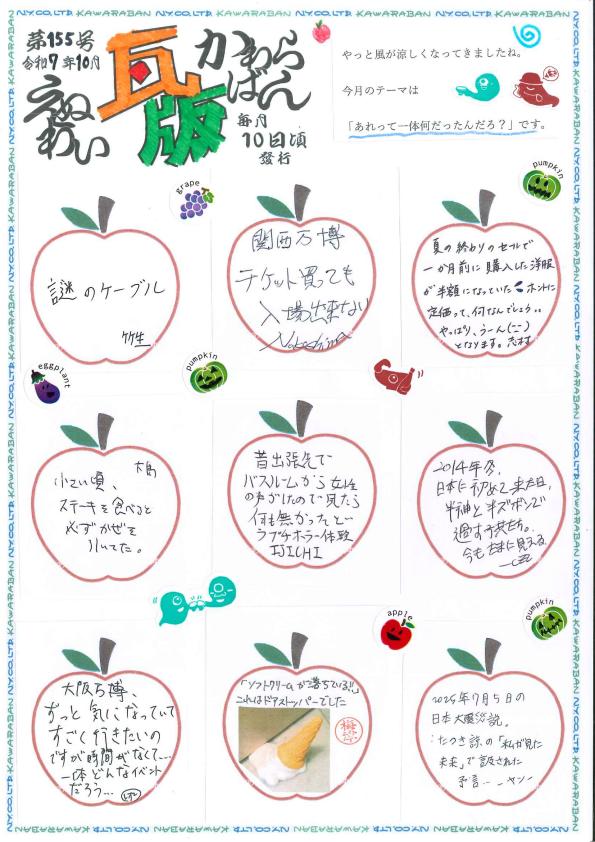 第155号
令和7年10月
えぬ
わい
瓦版
かわら
ばん
毎月
10日頃
發行
やっと風が涼しくなってきましたね。
今月のテーマは
「あれって一体何だったんだろ？」です。
grape
pumpkin
謎のケーブル
竹生
関西万博
チケット買っても
入場出来ない
夏の終わりのセールで
一か月前に購入した洋服
が半額になっていた
ホントに
定価って、何なんでしょう。。
やっぱり、うーん(--)
となります。志村
eggplant
pumpkin
大島
小さい頃、
ステーキを食べると
必ずかぜを
引いてた。
昔出張先で
バスルームから女性
の声がしたので見たら
何も無かったという
プチホラー体験
IJICHI
2014年冬、
日本に初めて来た日、
半袖と半ズボンで
過す子供たち。
今もたまに見える
apple
pumpkin
大阪万博、
ずっと気になっていて
すごく行きたいの
ですが時間がなくて…
一体どんなイベント
だろう…
「ソフトクリームが落ちている!!」
これはドアストッパーでした
2025年7月5日の
日本大震災説。
たつき諒の「私が見た
未来」で話された
予言… ヤン
N.Y.CO.,LTD. KAWARABAN